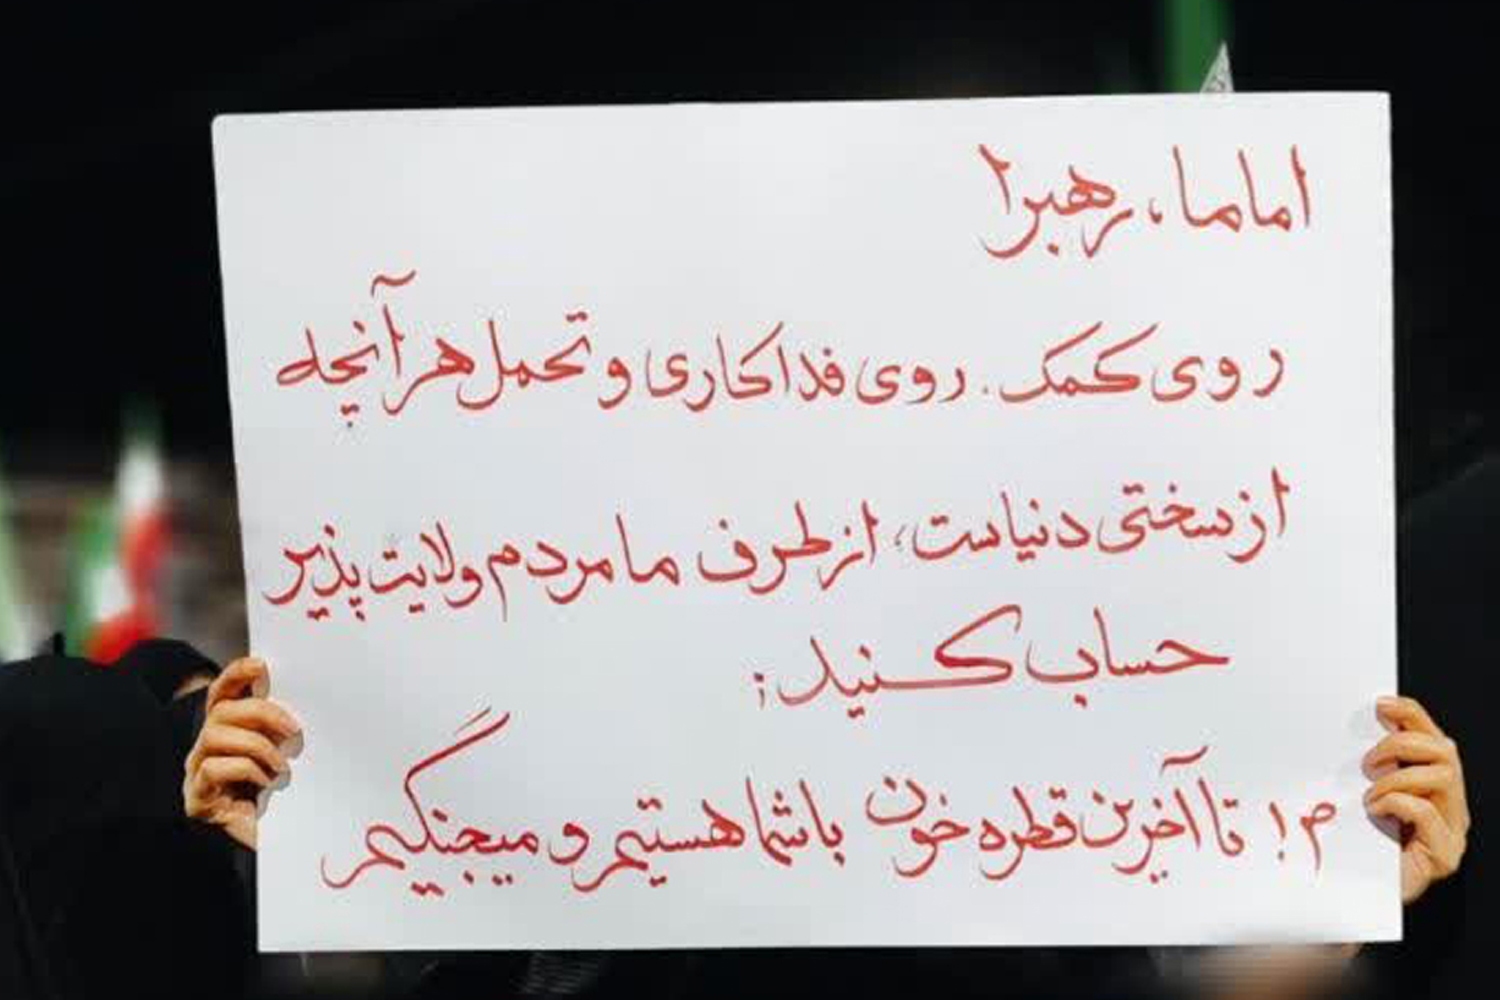 اماما، رهبرا
روی کمک. روی فداکاری و تحمل هر آنچه
از سختی دنیاست، از طرف ما مردم ولایت پذیر
حساب کنید؛
م! تا آخرین قطره خون با شما هستیم و میجنگیم